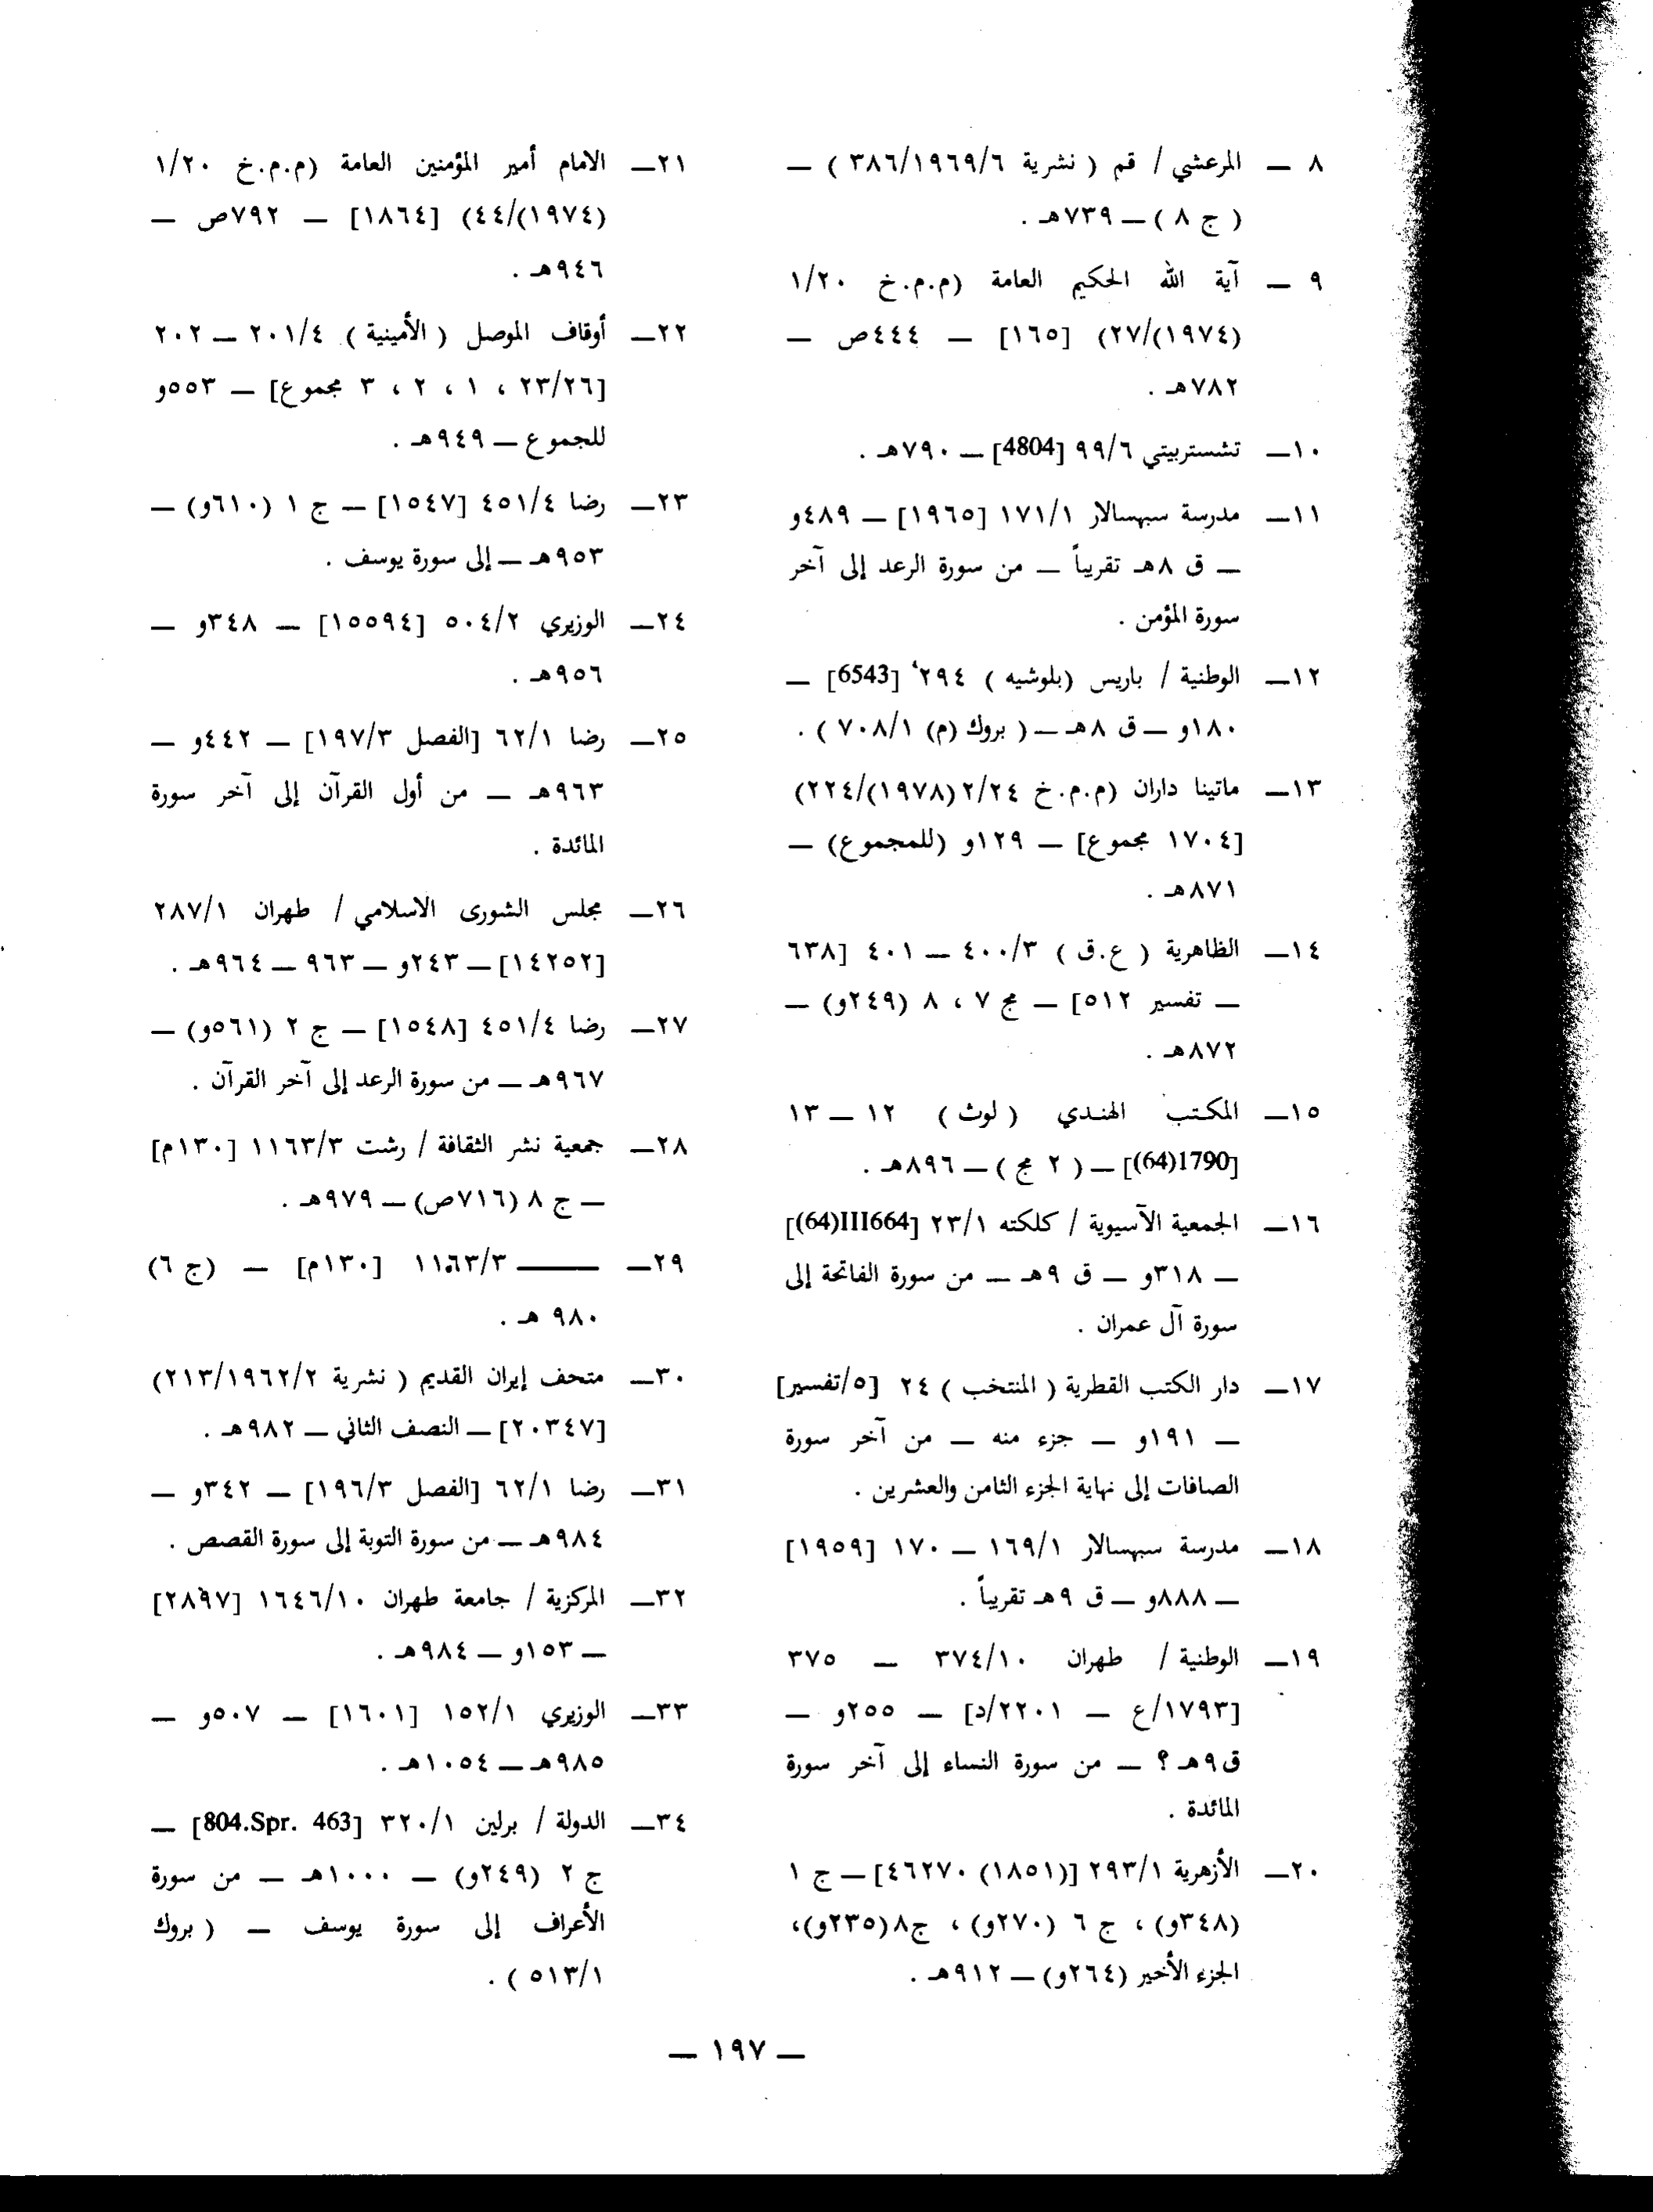 ٨ — المرعشي / قم ( نشرية ٣٨٦/١٩٦٩/٦ ) —
( ج ٨ ) — ٧٣٩هـ .
٩ — آية الله الحكيم العامة (م.م.خ ١/٢٠
(١٩٧٤)/٢٧) [١٦٥] — ٤٤٤ص —
٧٨٢هـ .
١٠— تشستربيتي ٩٩/٦ [4804] — ٧٩٠هـ .
١١— مدرسة سبهسالار ١٧١/١ [١٩٦٥] — ٤٨٩و
— ق ٨هـ تقريباً — من سورة الرعد إلى آخر
سورة المؤمن .
١٢— الوطنية / باريس (بلوشيه ) ٢٩٤ [6543] —
١٨٠و — ق ٨هـ — ( بروك (م) ٧٠٨/١ ) .
١٣— ماتينا داران (م.م.خ ٢/٢٤(١٩٧٨)/٢٢٤)
[١٧٠٤ مجموع] — ١٢٩و (للمجموع) —
٨٧١هـ .
١٤— الظاهرية ( ع.ق ) ٤٠٠/٣ — ٤٠١ [٦٣٨
— تفسير ٥١٢] — مج ٧ ، ٨ (٢٤٩و) —
٨٧٢هـ .
١٥— المكتب الهندي ( لوث ) ١٢ — ١٣
[1790(64)] — ( ٢ مج ) — ٨٩٦هـ .
١٦— الجمعية الآسيوية / كلكته ٢٣/١ [III664(64)]
— ٣١٨و — ق ٩هـ — من سورة الفاتحة إلى
سورة آل عمران .
١٧— دار الكتب القطرية ( المنتخب ) ٢٤ [٥/تفسير]
— ١٩١و — جزء منه — من آخر سورة
الصافات إلى نهاية الجزء الثامن والعشرين .
١٨— مدرسة سبهسالار ١٦٩/١ — ١٧٠ [١٩٥٩]
— ٨٨٨و — ق ٩هـ تقريباً .
١٩— الوطنية / طهران ٣٧٤/١٠ — ٣٧٥
[١٧٩٣/ع — ٢٢٠١/د] — ٢٥٥و —
ق٩هـ ؟ — من سورة النساء إلى آخر سورة
المائدة .
٢٠— الأزهرية ٢٩٣/١ [(١٨٥١) ٤٦٢٧٠] — ج ١
(٣٤٨و) ، ج ٦ (٢٧٠و) ، ج٨ (٢٣٥و)،
الجزء الأخير (٢٦٤و) — ٩١٢هـ .
٢١— الامام أمير المؤمنين العامة (م.م.خ ١/٢٠
(١٩٧٤)/٤٤) [١٨٦٤] — ٧٩٢ص —
٩٤٦هـ .
٢٢— أوقاف الموصل ( الأمينية ) ٢٠١/٤ — ٢٠٢
[٢٣/٢٦ ، ١ ، ٢ ، ٣ مجموع] — ٥٥٣و
للجموع — ٩٤٩هـ .
٢٣— رضا ٤٥١/٤ [١٥٤٧] — ج ١ (٦١٠و) —
٩٥٣هـ — إلى سورة يوسف .
٢٤— الوزيري ٥٠٤/٢ [١٥٥٩٤] — ٣٤٨و —
٩٥٦هـ .
٢٥— رضا ٦٢/١ [الفصل ١٩٧/٣] — ٤٤٢و —
٩٦٣هـ — من أول القرآن إلى آخر سورة
المائدة .
٢٦— مجلس الشورى الاسلامي / طهران ٢٨٧/١
[١٤٢٥٢] — ٢٤٣و — ٩٦٣ — ٩٦٤هـ .
٢٧— رضا ٤٥١/٤ [١٥٤٨] — ج ٢ (٥٦١و) —
٩٦٧هـ — من سورة الرعد إلى آخر القرآن .
٢٨— جمعية نشر الثقافة / رشت ١١٦٣/٣ [١٣٠م]
— ج ٨ (٧١٦ص) — ٩٧٩هـ .
٢٩— ——— ١١٦٣/٣ [١٣٠م] — (ج ٦)
٩٨٠ هـ .
٣٠— متحف إيران القديم ( نشرية ٢١٣/١٩٦٢/٢)
[٢٠٣٤٧] — النصف الثاني — ٩٨٢هـ .
٣١— رضا ٦٢/١ [الفصل ١٩٦/٣] — ٣٤٢و —
٩٨٤هـ — من سورة التوبة إلى سورة القصص .
٣٢— المركزية / جامعة طهران ١٦٤٦/١٠ [٢٨٩٧]
— ١٥٣و — ٩٨٤هـ .
٣٣— الوزيري ١٥٢/١ [١٦٠١] — ٥٠٧و —
٩٨٥هـ — ١٠٥٤هـ .
٣٤— الدولة / برلين ٣٢٠/١ [804.Spr. 463] —
ج ٢ (٢٤٩و) — ١٠٠٠هـ — من سورة
الأعراف إلى سورة يوسف — ( بروك
٥١٣/١ ) .
— ١٩٧ —